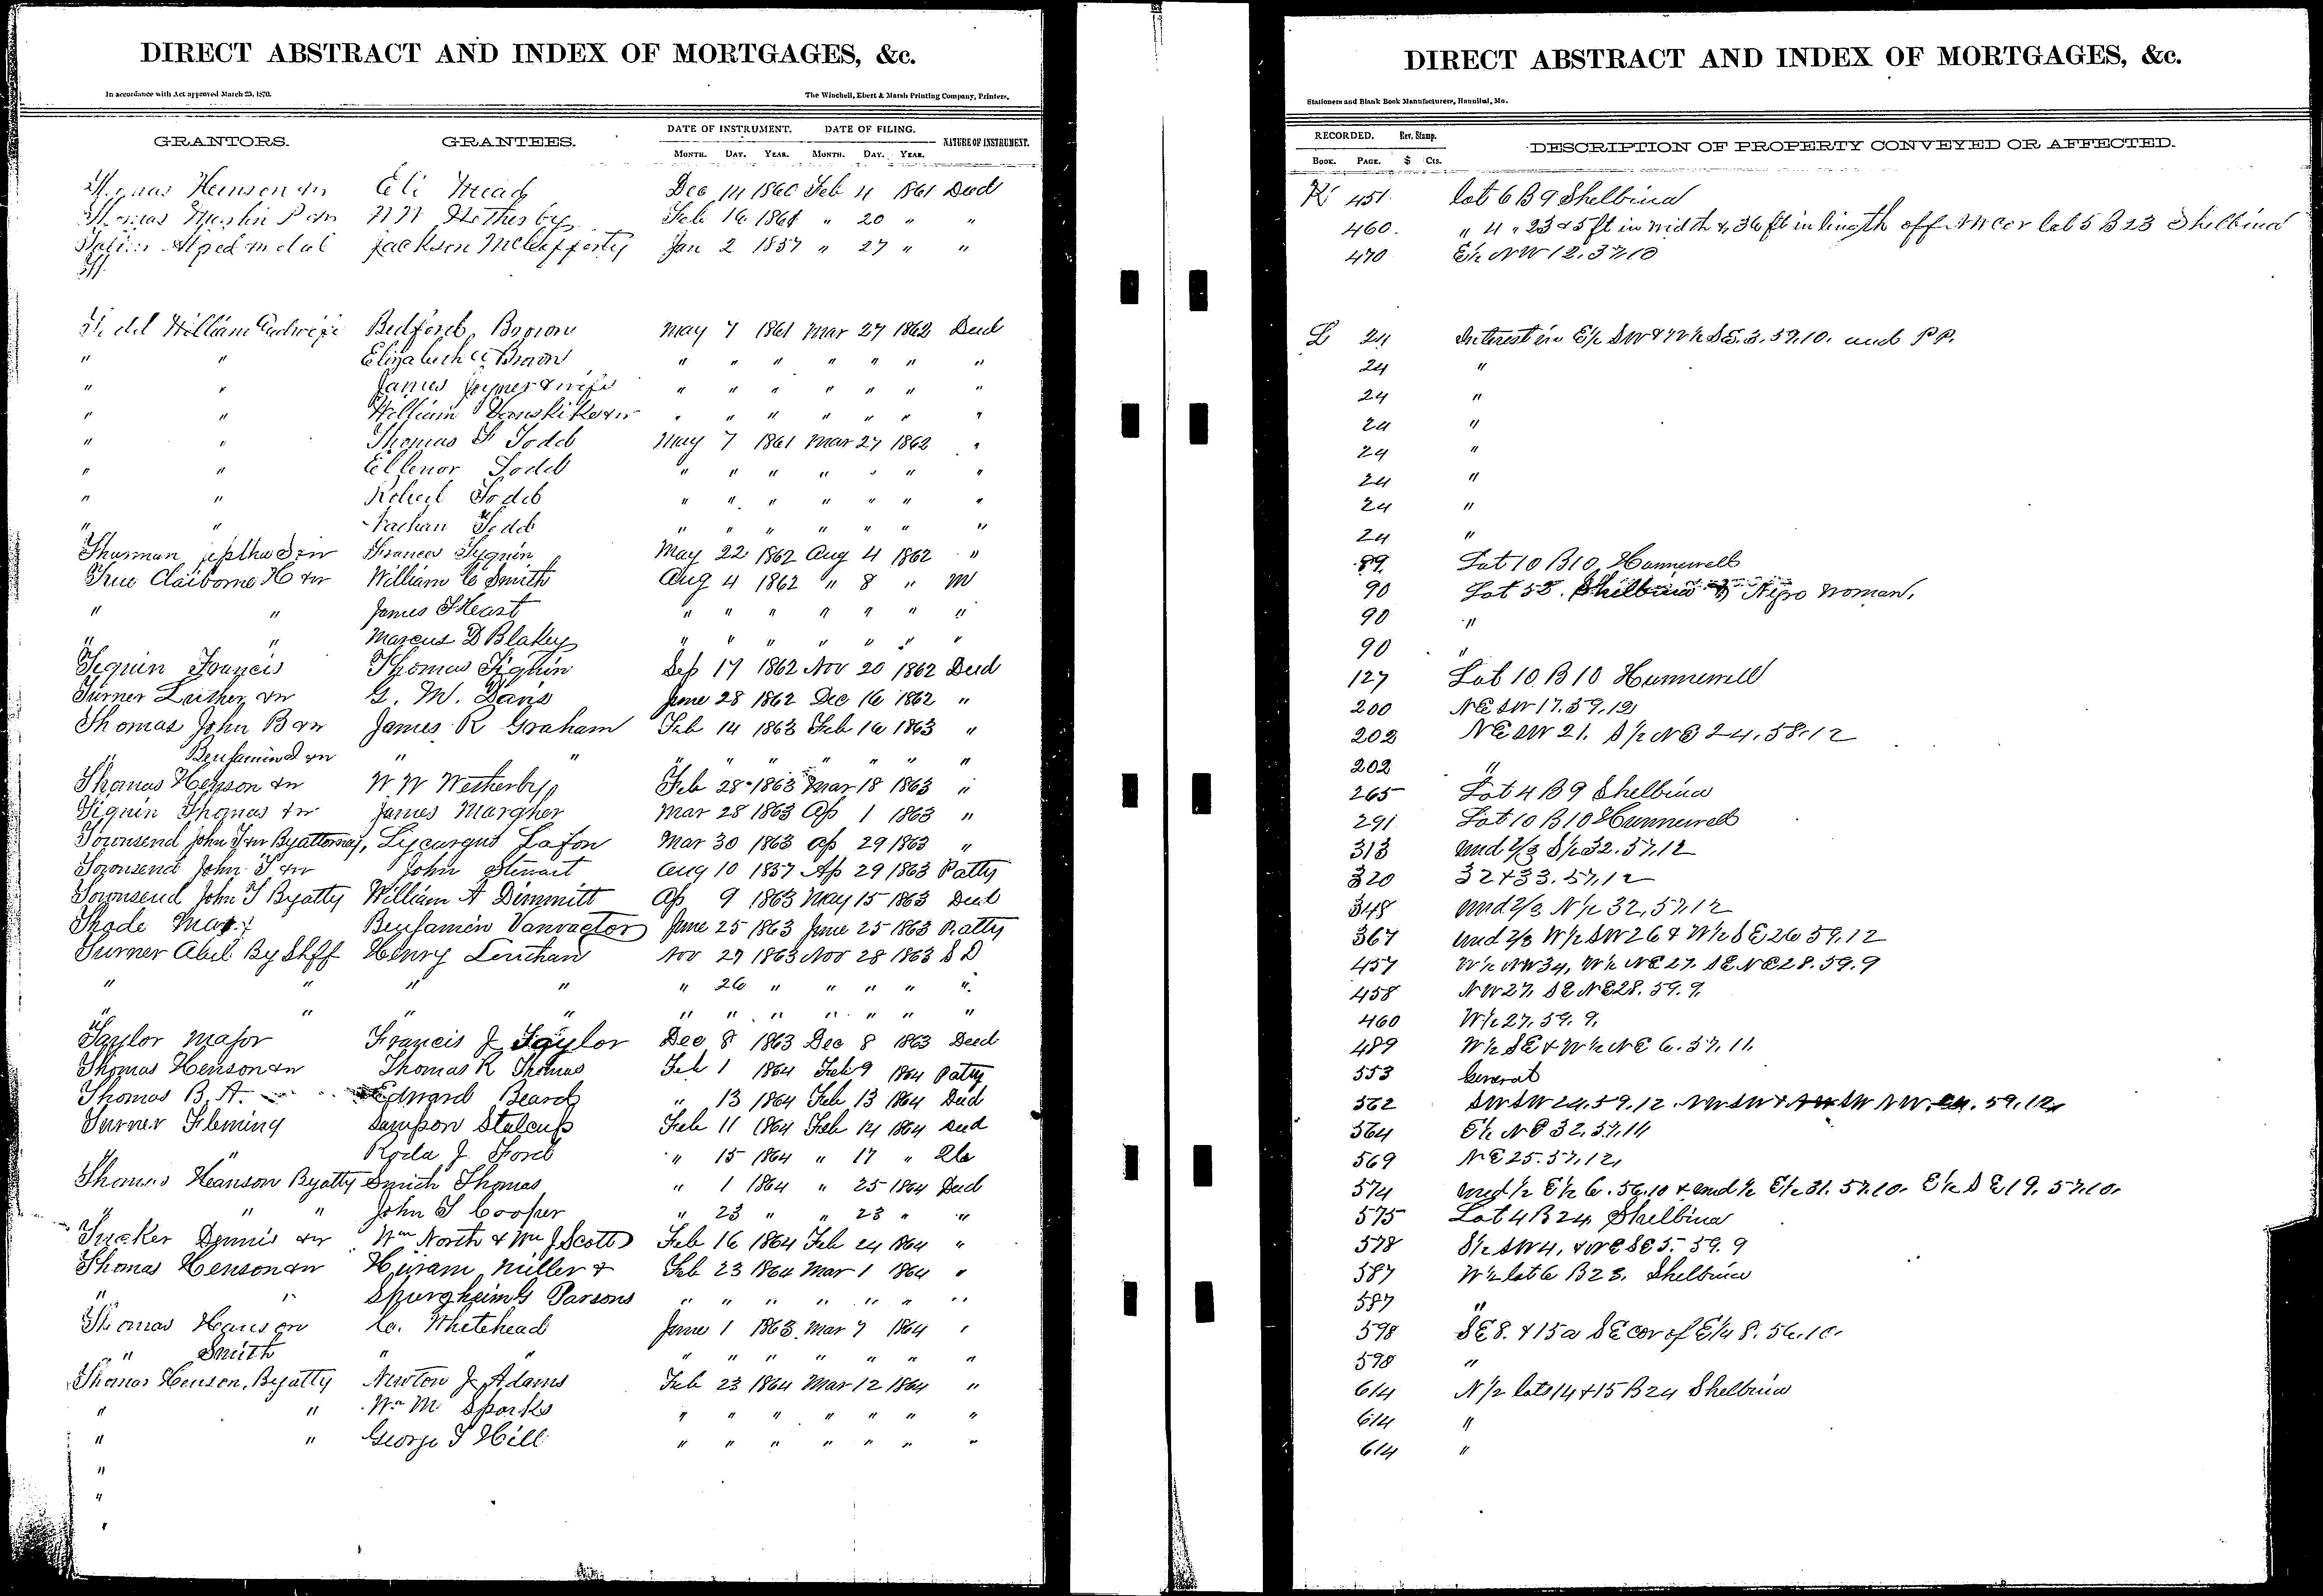 DIRECT ABSTRACT AND INDEX OF MORTGAGES, &c.
In accordance with Act approved March 25, 1870. The Winchell, Ebert & Marsh Printing Company, Printers,
GRANTORS. GRANTEES. DATE OF INSTRUMENT. DATE OF FILING. NATURE OF INSTRUMENT.
MONTH. DAY. YEAR. MONTH. DAY. YEAR.
Thomas Henson & w Eli Mead Dec 14 1860 Feb 4 1861 Deed
Thomas P & w W W Wetherby Feb 16 1861 " 20 " "
Jackson McClefferty Jan 2 1857 " 27 " "
William and wife Bedford Brown May 7 1861 Mar 27 1862 Deed
" " Elizabeth C Brown " " " " " " "
" " James & wife " " " " " " "
" " William " " " " " " "
" " Thomas F Todd May 7 1861 Mar 27 1862 "
" " Ellenor Todd " " " " " " "
" " Robert Todd " " " " " " "
" " Nathan Todd " " " " " " "
Thurman Jeptha D & w Frances May 22 1862 Aug 4 1862 "
True Claiborne H & w William C Smith Aug 4 1862 " 8 " M
" " James S Heart " " " " " " "
" " Marcus D Blakey " " " " " " "
Tiquin Francis Thomas Tiquin Sep 17 1862 Nov 20 1862 Deed
Turner Luther & w G. M. Davis June 28 1862 Dec 16 1862 "
Thomas John B & w James R Graham Feb 14 1863 Feb 16 1863 "
" Benjamin & w " " " " " " " " "
Thomas Henson & w W W Wetherby Feb 28 1863 Mar 18 1863 "
Tiquin Thomas & w James Margher Mar 28 1863 Ap 1 1863 "
Townsend John T & w By attorney, Lycurgus Lafon Mar 30 1863 Ap 29 1863 "
Townsend John T & w John Stewart Aug 10 1857 Ap 29 1863 P atty
Townsend John T By atty William A Dimmitt Ap 9 1863 May 15 1863 Deed
Thode Benjamin Vanvactor June 25 1863 June 25 1863 P. atty
Turner Abel By Shff Henry Lenthan Nov 27 1863 Nov 28 1863 S D
" " " " " 26 " " " " "
" " " " " " " " " " "
Taylor Major Francis J Taylor Dec 8 1863 Dec 8 1863 Deed
Thomas Henson & w Thomas R Thomas Feb 1 1864 Feb 9 1864 P atty
Thomas B. A. Edward Beard " 13 1864 Feb 13 1864 Deed
Turner Fleming Sampson Stalcup Feb 11 1864 Feb 14 1864 Deed
" Roda J. Ford " 15 1864 " 17 "
Thomas Heanson By atty Smith Thomas " 1 1864 " 25 1864 Deed
" " " John S Cooper " 23 " " 23 " "
Tucker Dennis & w Wm North & Wm J Scott Feb 16 1864 Feb 24 1864 "
Thomas Henson & w Hiram Miller & Feb 23 1864 Mar 1 1864 "
" " Spurgheim G Parsons " " " " " " "
Thomas Hanson Co. Whitehead June 1 1863 Mar 7 1864 "
" Smith " " " " " " " "
Thomas Henson, By atty Newton J Adams Feb 23 1864 Mar 12 1864 "
" " Wm M Sparks " " " " " " "
" " George T Hill " " " " " " "
"
"
"
DIRECT ABSTRACT AND INDEX OF MORTGAGES, &c.
Stationers and Blank Book Manufacturers, Hannibal, Mo.
RECORDED. Rev. Stamp. DESCRIPTION OF PROPERTY CONVEYED OR AFFECTED.
BOOK. PAGE. $ Cts.
K 451 Lot 6 B 9 Shelbina
460. " 4 " 23 & 5 ft in width & 36 ft in length off N W cor lot 5 B 23 Shelbina
470 E½ NW 12. 57. 10
L 24 Interest in E½ SW & W½ SE. 3. 59. 10. and P P.
24 "
24 "
24 "
24 "
24 "
24 "
24 "
89 Lot 10 B 10 Hunnewell
90 Lot 58. Shelbina & Negro woman,
90 "
90 "
127 Lot 10. B 10 Hunnewell
200 NE SW 17. 59. 12
202 NE SW 21. S½ NE 24. 58. 12
202 "
265 Lot 4 B 9 Shelbina
291 Lot 10 B 10 Hunnewell
313 und 2/3 S½ 32. 57. 12
320 32 & 33. 57. 12
348 und 2/3 N½ 32, 57. 12
367 und 2/3 W½ SW 26 & W½ SE 26 59. 12
457 W½ NW 34, W½ NE 27. SE NE 28. 59. 9
458 NW 27. SE NE 28. 59. 9.
460 W½ 27. 59. 9.
489 W½ SE & W½ NE 6. 57. 11.
553 General
562 SW SW 24. 59. 12. NW SW & SW NW. 59. 12
564 E½ NE 32. 57. 11
569 NE 25. 57. 12.
574 und ½ E½ 6. 56. 10 & und ½ E½ 31. 57. 10. E½ SE 19. 57. 10.
575 Lot 4 B 24 Shelbina
578 S½ SW 4. & NE SE 5. 59. 9
587 W½ lot 6 B 23. Shelbina
587 "
598 SE 8. & 15 a SE cor of E¼ 8. 56. 10.
598 "
614 N½ lots 14 & 15 B 24 Shelbina
614 "
614 "